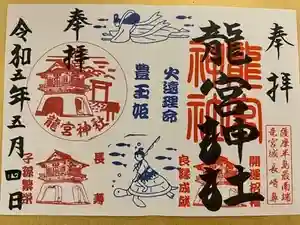 奉拝
龍宮神社
薩摩半島最南端
竜宮城 長崎鼻
開運招福
良縁成就
火遠理命
豊玉姫
奉拝
龍宮神社
長寿
子孫繁栄
令和五年五月四日